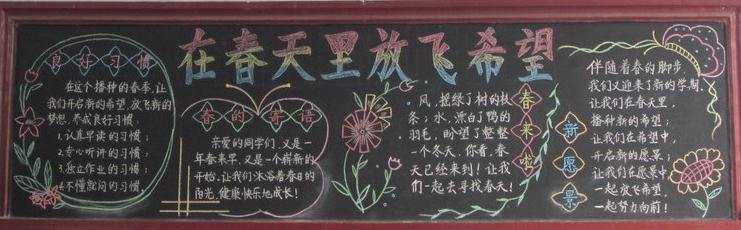 在春天里放飞希望
良好习惯
在这个播种的春季,让
我们开启新的希望,放飞新的
梦想,养成良好习惯:
1.认真早读的习惯;
2.专心听讲的习惯;
3.独立作业的习惯;
4.不懂就问的习惯。
春的寄语
亲爱的同学们,又是一
年春来早,又是一个崭新的
开始。让我们沐浴着春日的
阳光,健康快乐地成长!
春来啦
风,摇绿了树的枝
条;水,漂白了鸭的
羽毛,盼望了整整
一个冬天,你看,春
天已经来到!让我
们一起去寻找春天!
新愿景
伴随着春的脚步,
我们又迎来了新的学期,
让我们在春天里,
播种新的希望;
让我们在希望中,
开启新的愿景;
让我们在愿景中,
一起放飞希望,
一起努力向前!